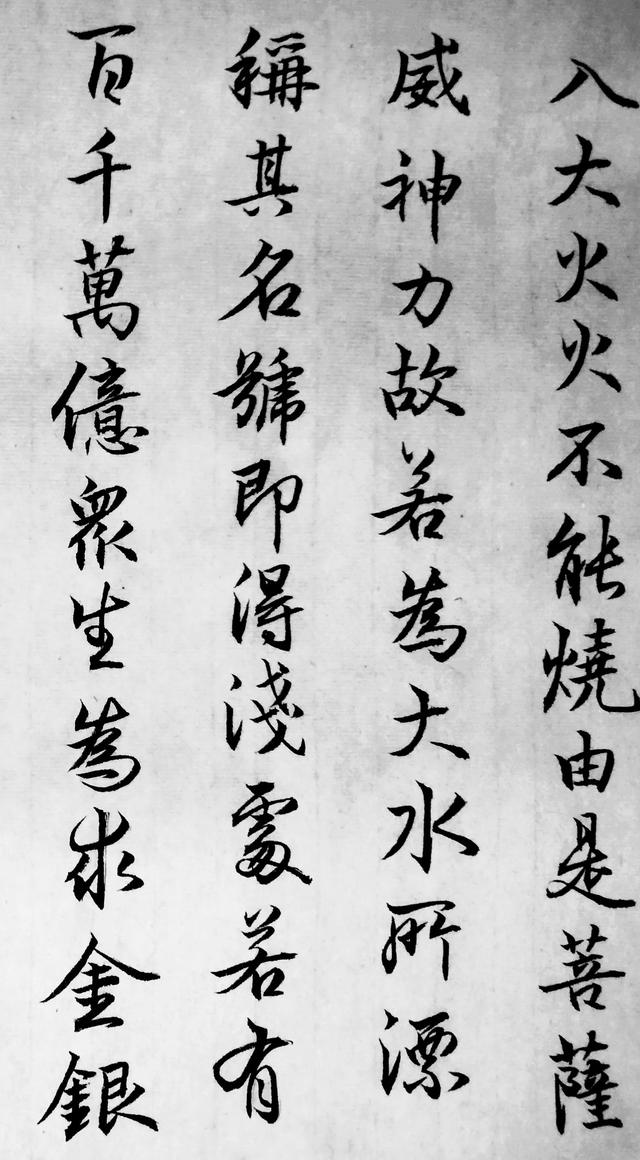 八大火火不能燒由是菩薩
威神力故若為大水所漂
稱其名號即得淺處若有
百千萬億眾生為求金銀